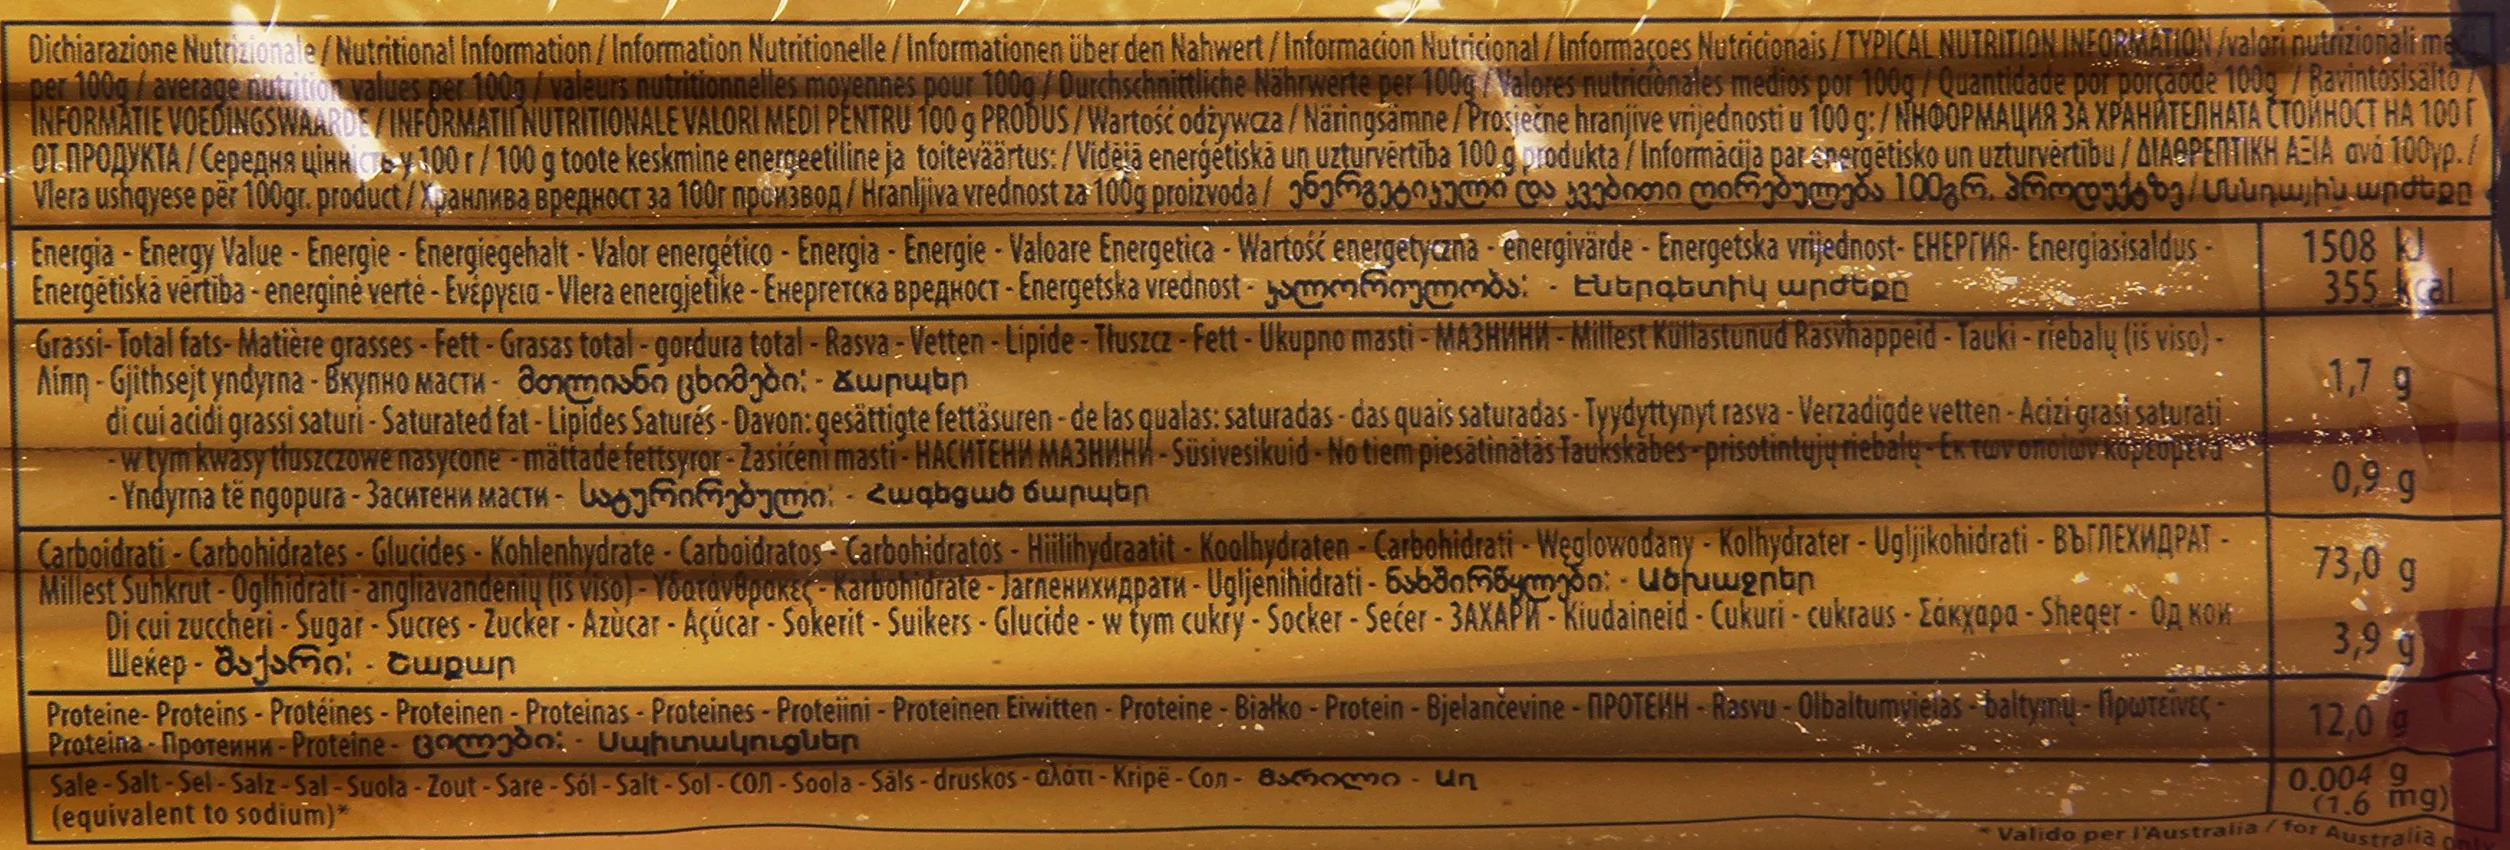 Dichiarazione Nutrizionale / Nutritional Information / Information Nutritionelle / Informationen über den Nahwert / Informacion Nutricional / Informaçoes Nutricionais / TYPICAL NUTRITION INFORMATION / valori nutrizionali
per 100g / average nutrition values per 100g / valeurs nutritionnelles moyennes pour 100g / Durchschnittliche Nährwerte per 100g / Valores nutricionales medios por 100g / Quantidade por porçaode 100g / Ravintosisältö /
INFORMATIE VOEDINGSWAARDE / INFORMATII NUTRITIONALE VALORI MEDI PENTRU 100 g PRODUS / Wartość odżywcza / Näringsämne / Prosječne hranjive vrijednosti u 100 g: / NНФОРМАЦИЯ ЗА ХРАНИТЕЛНАТА СТОЙНОСТ НА 100 Г
ОТ ПРОДУКТА / Середня цінність у 100 г / 100 g toote keskmine energeetiline ja toiteväärtus: / Vidējā enerģētiskā un uzturvērtība 100 g produkta / Informācija par enerģētisko un uzturvērtību / ΔΙΑΘΡΕΠΤΙΚΗ ΑΞΙΑ ανά 100γρ. /
Vlera ushqyese për 100gr. product / Хранлива вредност за 100г производ / Hranljiva vrednost za 100g proizvoda / ენერგეტიკული და კვებითი ღირებულება 100გრ. პროდუქტზე / Սննդային արժեքը
Energia - Energy Value - Energie - Energiegehalt - Valor energético - Energia - Energie - Valoare Energetica - Wartość energetyczna - energivärde - Energetska vrijednost- ЕНЕРГИЯ- Energiasisaldus - 1508 kJ
Energētiskā vērtība - energinė vertė - Ενέργεια - Vlera energjetike - Енергетска вредност - Energetska vrednost - კალორიულობა: - Էներգետիկ արժեքը 355 kcal
Grassi- Total fats- Matière grasses - Fett - Grasas total - gordura total - Rasva - Vetten - Lipide - Tłuszcz - Fett - Ukupno masti - МАЗНИНИ - Millest Küllastunud Rasvhappeid - Tauki - riebalų (iš viso) -
Λίπη - Gjithsejt yndyrna - Вкупно масти - მთლიანი ცხიმები: - Ճարպեր 1,7 g
di cui acidi grassi saturi - Saturated fat - Lipides Saturés - Davon: gesättigte fettäsuren - de las qualas: saturadas - das quais saturadas - Tyydyttynyt rasva - Verzadigde vetten - Acizi grasi saturati
- w tym kwasy tłuszczowe nasycone - mättade fettsyror - Zasićeni masti - НАСИТЕНИ МАЗНИНИ - Süsivesikuid - No tiem piesātinātās Taukskābes - prisotintųjų riebalų - Εκ των οποίων κορεσμένα
- Yndyrna të ngopura - Заситени масти - სატურირებული: - Հագեցած ճարպեր 0,9 g
Carboidrati - Carbohidrates - Glucides - Kohlenhydrate - Carboidratos - Carbohidratos - Hiilihydraatit - Koolhydraten - Carbohidrati - Węglowodany - Kolhydrater - Ugljikohidrati - ВЪГЛЕХИДРАТ - 73,0 g
Millest Suhkrut - Ogļhidrāti - angliavandenių (iš viso) - Υδατάνθρακες - Karbohidrate - Јагленихидрати - Ugljenihidrati - ნახშირწყლები: - Ածխաջրեր
Di cui zuccheri - Sugar - Sucres - Zucker - Azùcar - Açúcar - Sokerit - Suikers - Glucide - w tym cukry - Socker - Sećer - ЗАХАРИ - Kiudaineid - Cukuri - cukraus - Σάκχαρα - Sheqer - Од кои
Шеќер - შაქარი: - Շաքար 3,9 g
Proteine- Proteins - Protéines - Proteinen - Proteinas - Proteines - Proteiini - Proteinen Eiwitten - Proteine - Białko - Protein - Bjelančevine - ПРОТЕИН - Rasvu - Olbaltumvielas - baltymų - Πρωτεΐνες -
Proteina - Протеини - Proteine - ცილები: - Սպիտակուցներ 12,0 g
Sale - Salt - Sel - Salz - Sal - Suola - Zout - Sare - Sól - Salt - Sol - СОЛ - Soola - Sāls - druskos - αλάτι - Kripë - Сол - მარილი - Աղ 0.004 g
(equivalent to sodium)* (1.6 mg)
* Valido per l'Australia / for Australia only